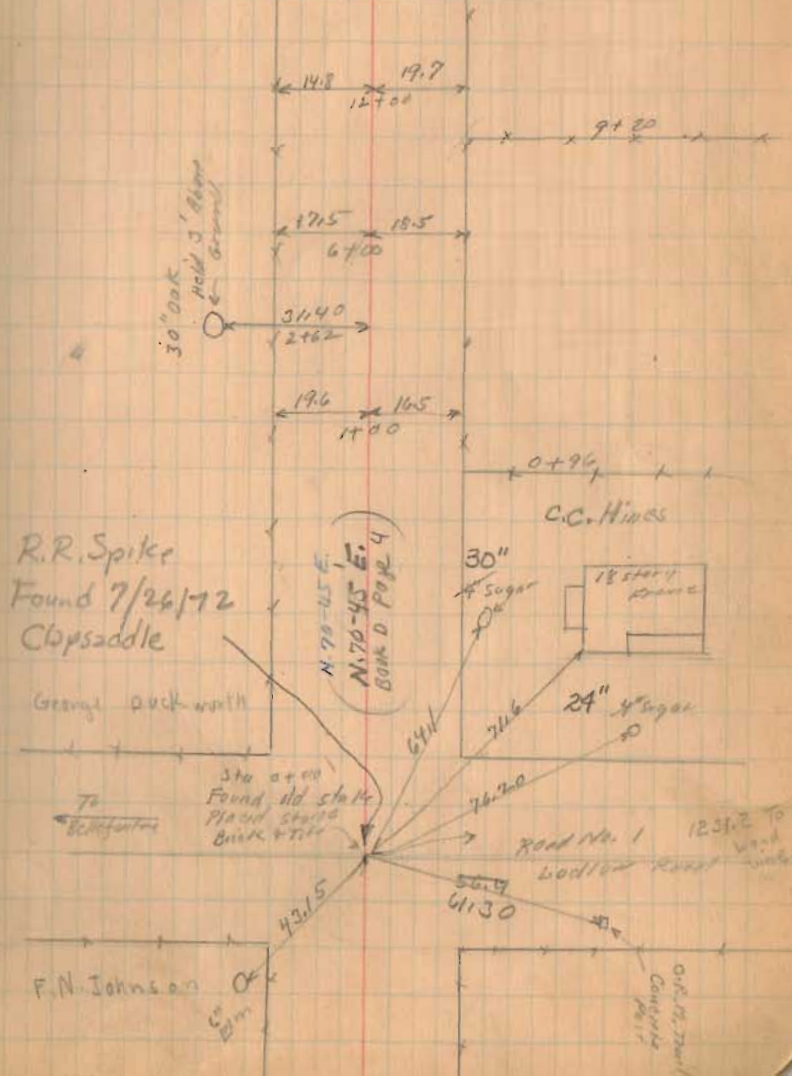 14.8
19.7
12+00
9+20
17.5
18.5
6+00
30" Oak
Hold 3' Above
Ground
31.40
2+62
19.6
16.5
1+00
0+96
C.C. Hines
R.R. Spike
Found 7/26/72
Clapsaddle
N. 70-45 E.
N. 70-45' E.
Book D Page 4
30"
4" Sugar
1½ story
Frame
George Duckworth
24"
4" Sugar
64.1
71.6
76.20
Sta 0+00
Found old stake
Placed stone
Brick & Tile
To
Bellefontaine
Road No. 1
Ludlow Road
1231.2 To
56.9
61.30
43.15
F.N. Johnson
6"
Elm
Concrete
Post